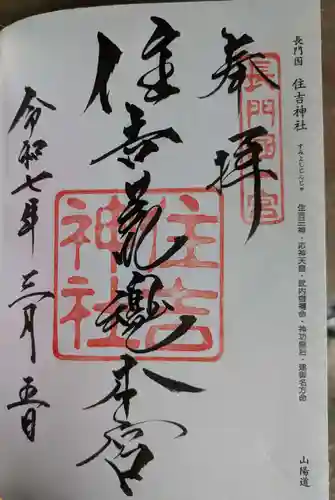 長門国 住吉神社
すみよしじんじゃ
住吉三神・応神天皇・武内宿禰命・神功皇后・建御名方命
山陽道
奉拝
長門國一宮
住吉荒魂本宮
住吉神社
令和七年 三月 五日